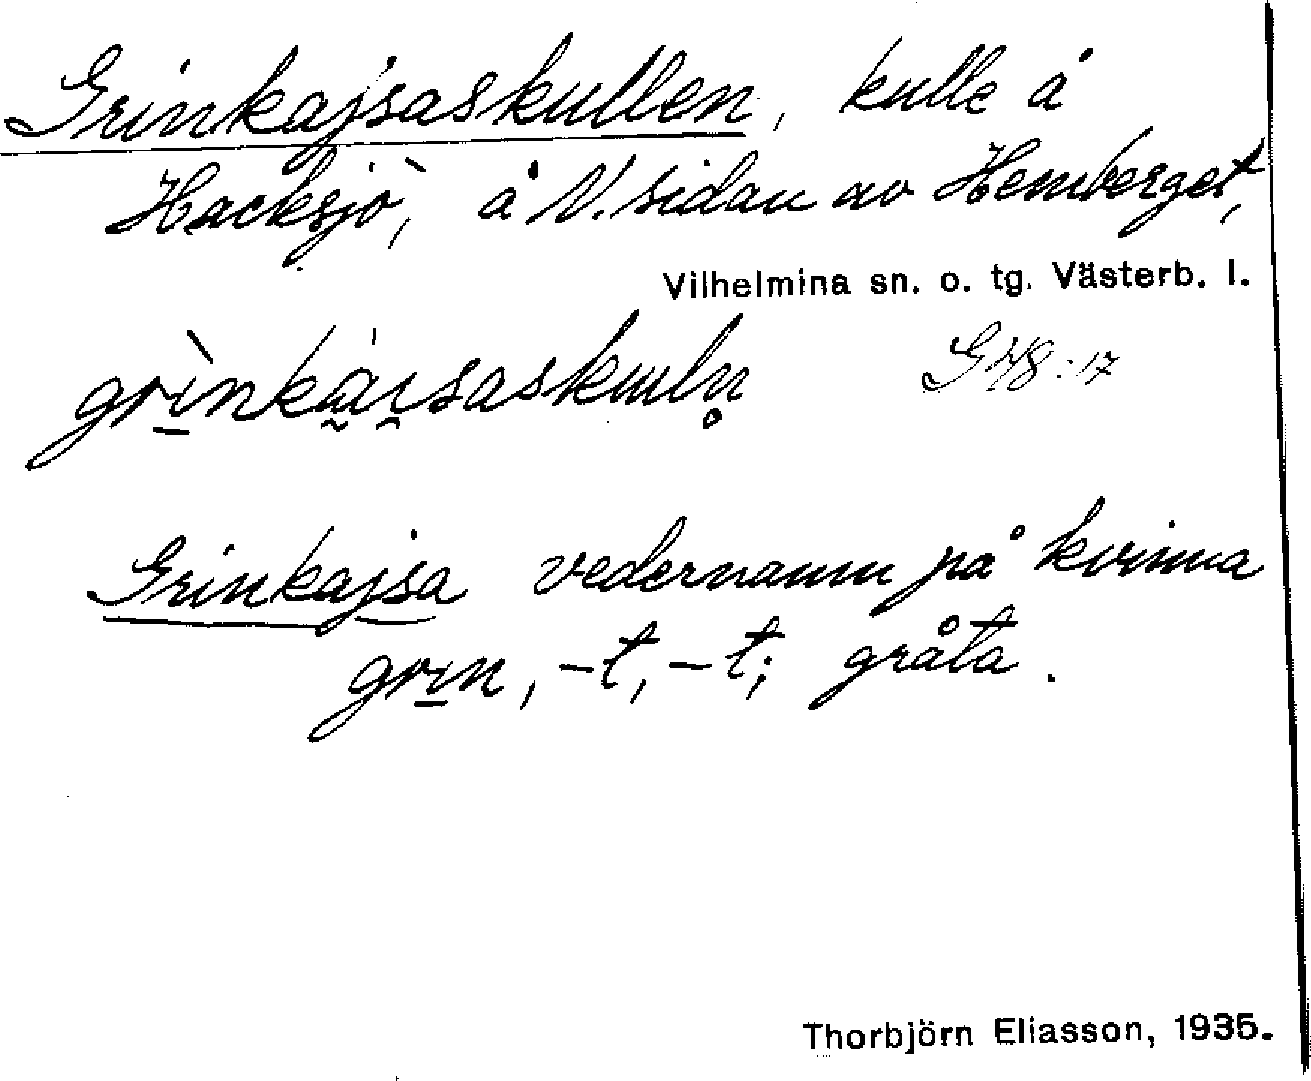 Grinkajsaskullen, kulle å
Hacksjö, å V. sidan av Hemberget,
Vilhelmina sn. o. tg. Västerb. l.
grìnkàisaskuln̥
Grinkajsa vedernamn på kvinna
grin, -t, -t; gråta.
Thorbjörn Eliasson, 1935.